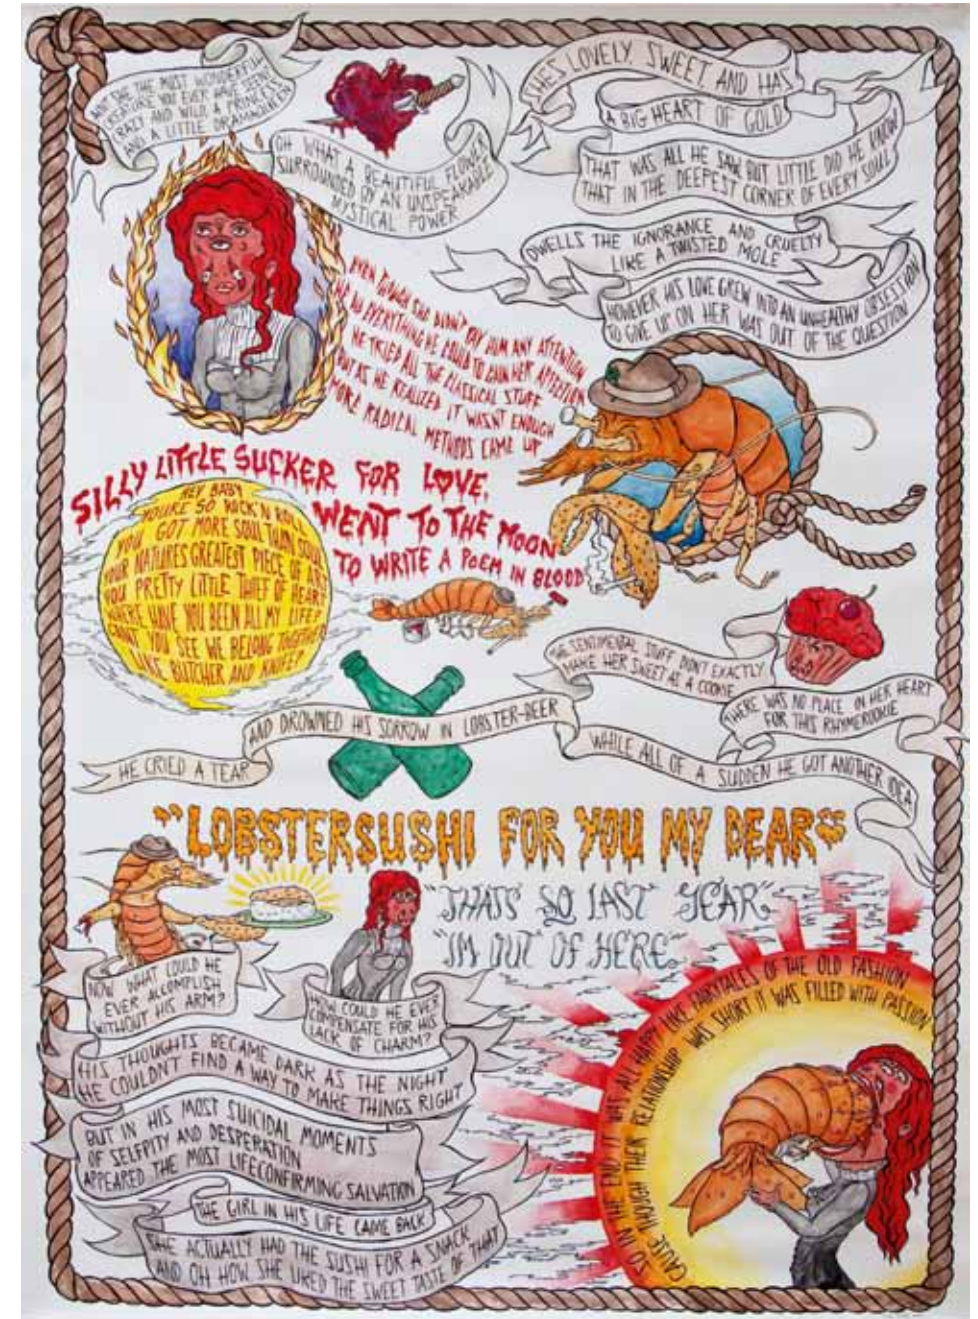 AIN'T SHE THE MOST WONDERFUL
CREATURE YOU EVER HAVE SEEN?
CRAZY AND WILD, A PRINCESS
AND A LITTLE DRAMAQUEEN
OH WHAT A BEAUTIFUL FLOWER
SURROUNDED BY AN UNSPEAKABLE
MYSTICAL POWER
SHES LOVELY, SWEET, AND HAS
A BIG HEART OF GOLD
THAT WAS ALL HE SAW BUT LITTLE DID HE KNOW
THAT IN THE DEEPEST CORNER OF EVERY SOUL
DWELLS THE IGNORANCE AND CRUELTY
LIKE A TWISTED MOLE
HOWEVER HIS LOVE GREW INTO AN UNHEALTHY OBSESSION
TO GIVE UP ON HER WAS OUT OF THE QUESTION
EVEN TOUGH SHE DIDN'T PAY HIM ANY ATTENTION
HE DID EVERYTHING HE COULD TO GAIN HER AFFECTION
HE TRIED ALL THE CLASSICAL STUFF
BUT AS HE REALIZED IT WASNT ENOUGH
MORE RADICAL METHODS CAME UP
SILLY LITTLE SUCKER FOR LOVE,
WENT TO THE MOON
TO WRITE A POEM IN BLOOD
HEY BABY
YOURE SO ROCK'N ROLL
YOU GOT MORE SOUL THAN SOUL
YOUR NATURES GREATEST PIECE OF ART
YOU PRETTY LITTLE THIEF OF HEARTS
WHERE HAVE YOU BEEN ALL MY LIFE?
CANT YOU SEE WE BELONG TOGETHER
LIKE BUTCHER AND KNIFE?
THE SENTIMENTAL STUFF DIDN'T EXACTLY
MAKE HER SWEET AS A COOKIE
THERE WAS NO PLACE IN HER HEART
FOR THIS RHYMEROOKIE
HE CRIED A TEAR
AND DROWNED HIS SORROW IN LOBSTER-BEER
WHILE ALL OF A SUDDEN HE GOT ANOTHER IDEA
"LOBSTERSUSHI FOR YOU MY DEAR"
"THATS SO LAST YEAR"
"IM OUT OF HERE"
NOW WHAT COULD HE
EVER ACCOMPLISH
WITHOUT HIS ARM?
HOW COULD HE EVER
COMPENSATE FOR HIS
LACK OF CHARM?
HIS THOUGHTS BECAME DARK AS THE NIGHT
HE COULDNT FIND A WAY TO MAKE THINGS RIGHT
BUT IN HIS MOST SUICIDAL MOMENTS
OF SELFPITY AND DESPERATION
APPEARED THE MOST LIFECONFIRMING SALVATION
THE GIRL IN HIS LIFE CAME BACK
SHE ACTUALLY HAD THE SUSHI FOR A SNACK
AND OH HOW SHE LIKED THE SWEET TASTE OF THAT
SO IN THE END IT WAS ALL HAPPY LIKE FAIRYTALES OF THE OLD FASHION
CAUSE THOUGH THEIR RELATIONSHIP WAS SHORT IT WAS FILLED WITH PASSION